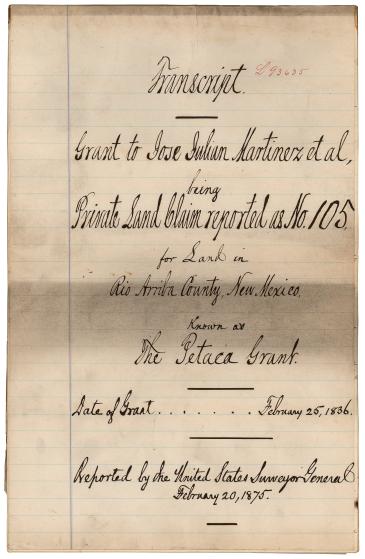 Transcript. L93635
Grant to Jose Julian Martinez et al,
being
Private Land Claim reported as No. 105
for Land in
Rio Arriba County, New Mexico.
Known as
The Petaca Grant.
Date of Grant . . . . . . . February 25, 1836.
Reported by the United States Surveyor General
February 20, 1875.